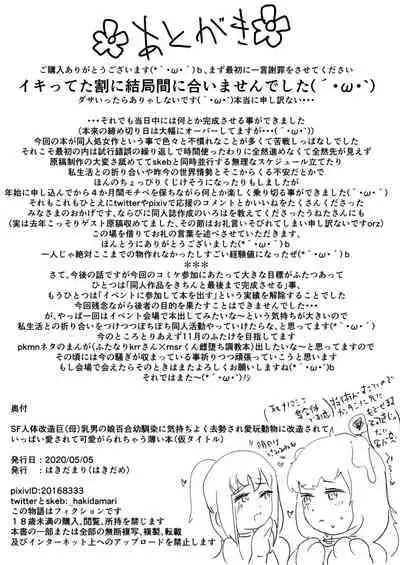 あとがき
ご購入ありがとうございます(*´･ω･`)ｂ、まず最初に一言謝罪をさせてください
イキってた割に結局間に合いませんでした(´･ω･`)
ダサいったらありゃしないです(´･ω･`)本当に申し訳ない・・・
・・・それでも当日中には何とか完成させる事ができました
(本来の締め切り日は大幅にオーバーしてますが・・・(´･ω･`))
今回の本が同人処女作という事で色々と不慣れなことが多くて苦戦しっぱなしでした
それこそ最初の内は試行錯誤の繰り返しで時間使ったわりに全然進みなくて全然先が見えず
原稿制作の大変さ舐めててskebと同時並行する無理なスケジュール立てたり
私生活との折り合いや昨今の世界情勢とそこからくる不安だとかで
ほんのちょっぴりくじけそうになったりもしましたが
年始に申し込んでから４か月間モチベを保ちながら何とか楽しく乗り切る事ができました(´･ω･`)
それもこれもひとえにtwitterやpixivで応援のコメントとかいいねをたくさんくださった
みなさまのおかげです、ならびに同人誌作成のいろはを教えてくださったうねたさんにも
(実は去年こっそりゲスト原稿収めてました、その節はお礼言いそびれてしまい申し訳ないですorz)
この場を借りてお礼の言葉を述べさせていただきます、
ほんとうにありがとうございました(*´･ω･`)ｂ
一人じゃ絶対ここまでの物作れなかったしすごい経験値になったぜ(*´･ω･`)ｂ
＊＊＊
さて、今後の話ですが今回のコミケ参加にあたって大きな目標がふたつあって
ひとつは「同人作品をきちんと最後まで完成させる」事、
もうひとつは「イベントに参加して本を出す」という実績を解除することでした
今回残念ながら後者の目的を果たすことはできませんでした・・・
が、やっぱ一回はイベント会場で本出してみたいな～という気持ちが大きいので
私生活との折り合いをつけつつぼちぼち同人活動やっていけたらな、と思ってます(*´･ω･`)
今のところとりあえず11月のふたけを目指してます
pkmnネタのまんが(ふたなりkrrさん×msrくん雌堕ち調教本)出したいな～と思ってますので
その頃には今の騒ぎが収まっている事祈りつつ頑張っていこうと思います
もし会場で会えたらそのときはまたよろしくお願いしますね(*´･ω･`)ｂ
それではまた～(*´･ω･`)ﾉｼ
奥付
SF人体改造巨(母)乳男の娘百合幼馴染に気持ちよく去勢され愛玩動物に改造されて
いっぱい愛されて可愛がられちゃう薄い本(仮タイトル)
発行日：2020/05/05
発行：はきだまり(はきだめ)
pixivID:20168333
twitterとskeb:_hakidamari
この物語はフィクションです
１８歳未満の購入、閲覧、所持を禁じます
本書の一部または全部の無断複写、複製、転載
及びインターネット上へのアップロードを禁止します